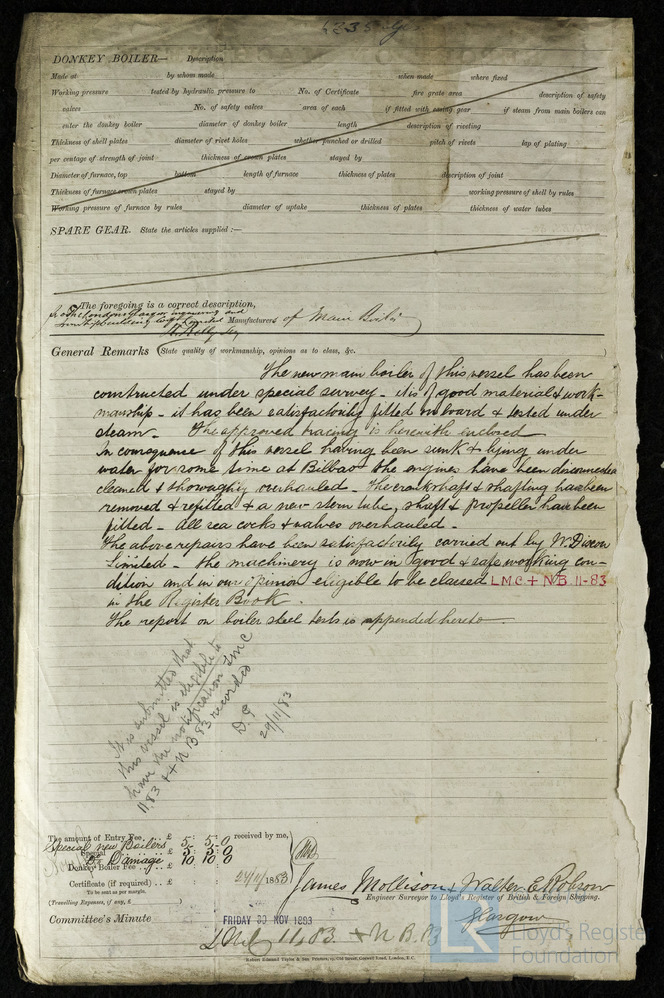 DONKEY BOILER— Description
Made at by whom made when made where fixed
Working pressure tested by hydraulic pressure to No. of Certificate fire grate area description of safety
valves No. of safety valves area of each if fitted with easing gear if steam from main boilers can
enter the donkey boiler diameter of donkey boiler length description of riveting
Thickness of shell plates diameter of rivet holes whether punched or drilled pitch of rivets lap of plating
per centage of strength of joint thickness of crown plates stayed by
Diameter of furnace, top bottom length of furnace thickness of plates description of joint
Thickness of furnace crown plates stayed by working pressure of shell by rules
Working pressure of furnace by rules diameter of uptake thickness of plates thickness of water tubes
SPARE GEAR. State the articles supplied :—
The foregoing is a correct description,
Manufacturers of Main Boiler
General Remarks (State quality of workmanship, opinions as to class, &c.
The new main boiler of this vessel has been
constructed under special survey - it is of good material & work-
manship - it has been satisfactorily fitted on board & tested under
steam - The approved tracing is herewith enclosed
In consequence of this vessel having been sunk & lying under
water for some time at Bilbao the engines have been disconnected
cleaned & thoroughly overhauled - The crankshaft & shafting has been
removed & refitted & a new stern tube, shaft & propeller have been
fitted - All sea cocks & valves overhauled -
The above repairs have been satisfactorily carried out by W. Dixon
Limited - the machinery is now in good & safe working con-
dition and in our opinion eligible to be classed L.M.C + N.B. 11-83
in the Register Book.
The report on boiler steel tests is appended hereto
It is submitted that
this vessel is eligible to
have the notification LMC
11.83 + N B 83 recorded
D.G
29/11/83
The amount of Entry Fee .. £ 5. 5. 0 received by me,
Special new Boilers £ 3 3 0
Damage £ 10 10 0
Donkey Boiler Fee .. £
Certificate (if required) .. £ 1883
To be sent as per margin.
(Travelling Expenses, if any, £ )
James Mollison & Walter E Robson
Engineer Surveyor to Lloyd's Register of British & Foreign Shipping.
Glasgow
Committee's Minute FRIDAY 30 NOV 1883
11.83. + N.B. 83
Lloyd's Register
Foundation